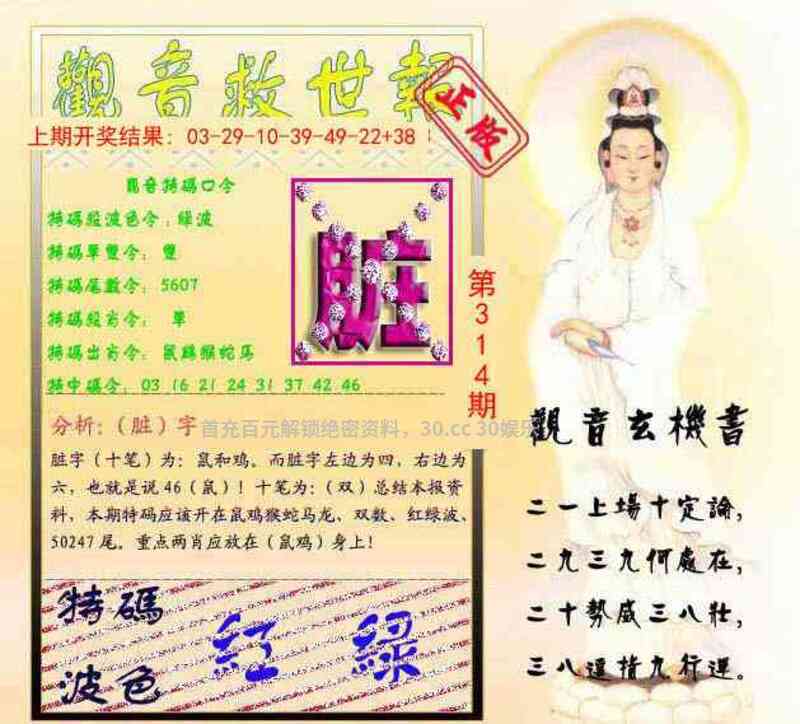 觀音救世報
正版
上期开奖结果：03-29-10-39-49-22+38
觀音特碼口令
特碼段波色令：綠波
特碼單雙令：雙
特碼尾數令：5607
特碼段肖令：單
特碼出肖令：鼠鷄猴蛇马
特中碼令：03 16 21 24 31 37 42 46
脏
第314期
分析：（脏）字
首充百元解锁绝密资料，30.cc 30娱乐
脏字（十笔）为：鼠和鸡。而脏字左边为四，右边为
六，也就是说46（鼠）！十笔为：（双）总结本报资
料，本期特码应该开在鼠鸡猴蛇马龙、双数、红绿波、
50247尾。重点两肖应放在（鼠鸡）身上！
特碼
波色
紅 綠
觀音玄機書
二一上場十定論，
二九三九何處在，
二十勢威三八壯，
三八運指九行運。